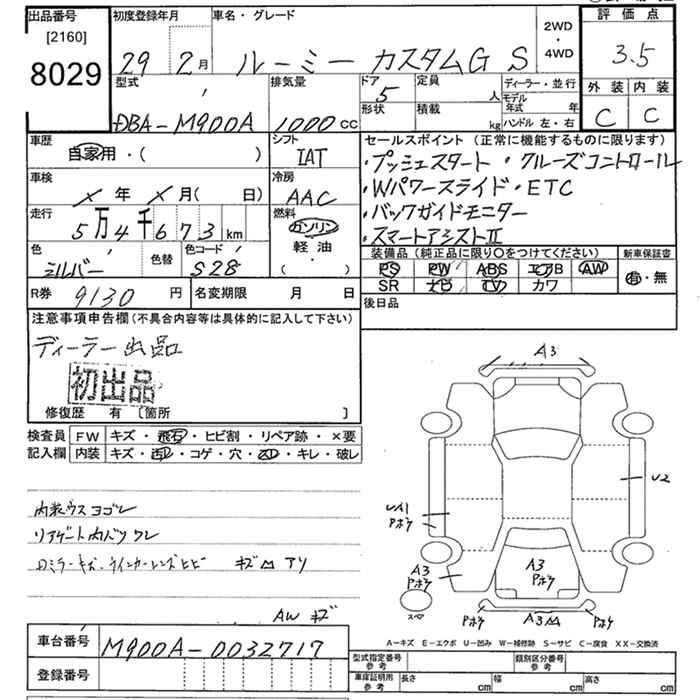 出品番号
[2160]
8029
初度登録年月
29年 2月
車名・グレード
ルーミー カスタムG S
2WD
・
4WD
評価点
3.5
外装 内装
C C
型式
DBA-M900A
排気量
1000cc
ドア
5
形状
定員
人
積載
kg
ディーラー・並行
モデル年式 年
ハンドル 左・右
車歴
自家用・( )
シフト
IAT
車検
X年 X月( 日)
冷房
AAC
走行
5万4千673km
燃料
ガソリン
軽油
・
( )
色
シルバー
色替
色コード
S28
セールスポイント (正常に機能するものに限ります)
・プッシュスタート ・クルーズコントロール
・Wパワースライド・ETC
・バックガイドモニター
・スマートアシストⅡ
装備品(純正品に限り○をつけてください)
PS PW ABS エアB AW
SR ナビ TV カワ
新車保証書
有・無
R券 9130円
名変期限 月 日
後日品
注意事項申告欄(不具合内容等は具体的に記入して下さい)
ディーラー出品
初出品
修復歴 有 〔箇所 〕
検査員 FW キズ・飛石・ヒビ割・リペア跡・×要
記入欄 内装 キズ・汚レ・コゲ・穴・スレ・キレ・破レ
内装ウスヨゴレ
リアゲート内バツ ワレ
ロミラーキズ・ウインカーレンズヒビ キズ凹アリ
AWキズ
A3
U2
UA1
Pボケ
A3
Pボケ
A3
Pボケ
スペ
Pボケ
A3凹
Pボケ
A=キズ E=エクボ U=凹み W=補修跡 S=サビ C=腐食 XX=交換済
車台番号 M900A-0032717
登録番号
型式指定番号 参考
類別区分番号 参考
車庫証明用 参考
長さ cm
幅 cm
高さ cm